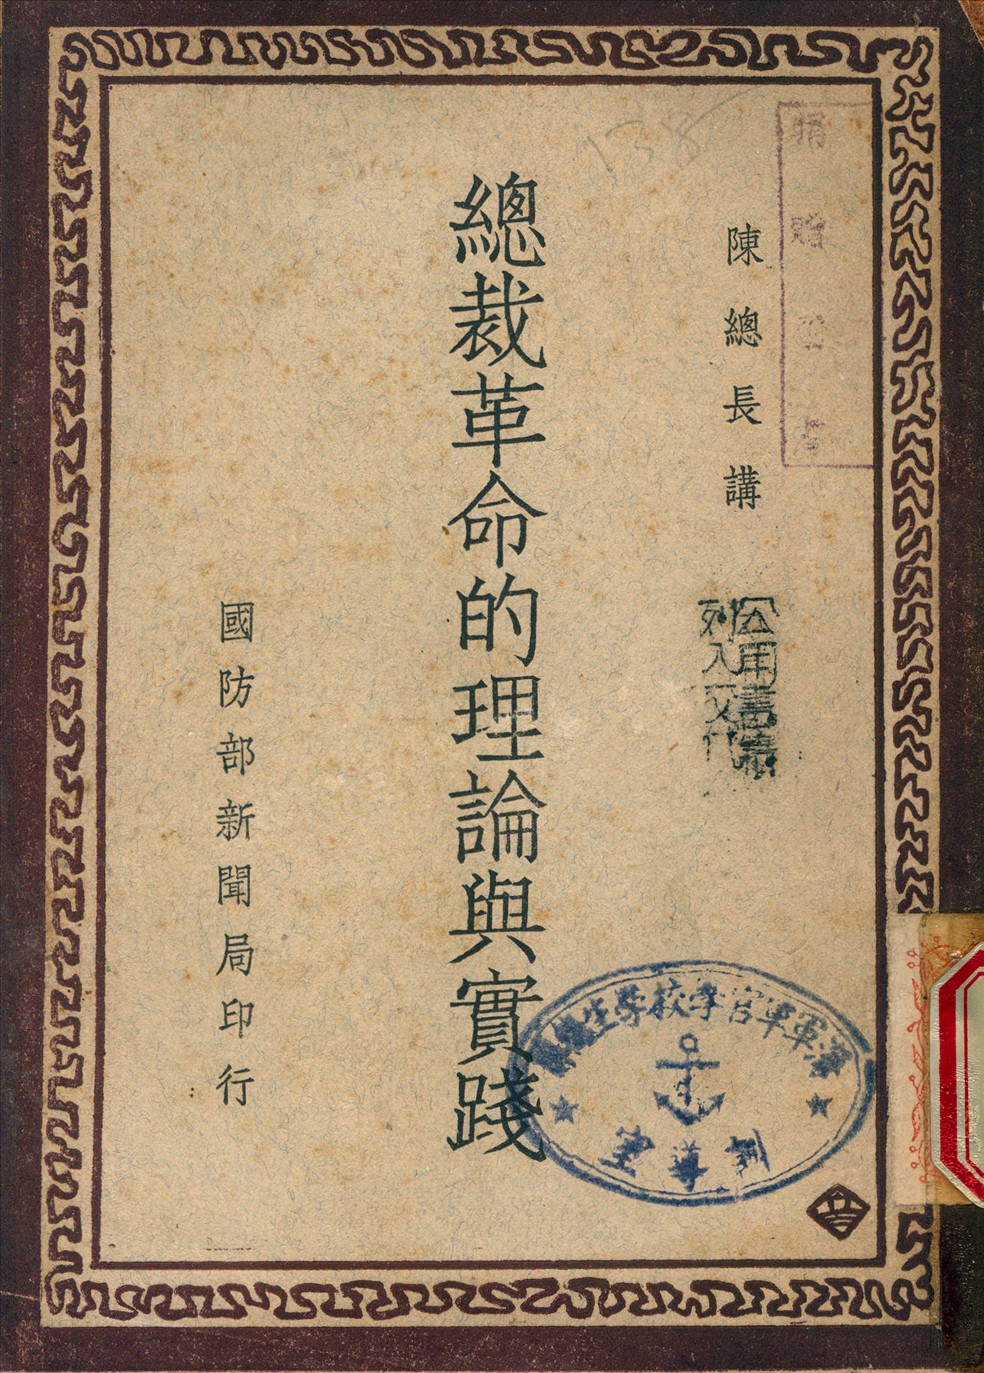 陳總長講
總裁革命的理論與實踐
國防部新聞局印行
公用書籍
列入交代
海軍軍官學校學生總隊
訓導室